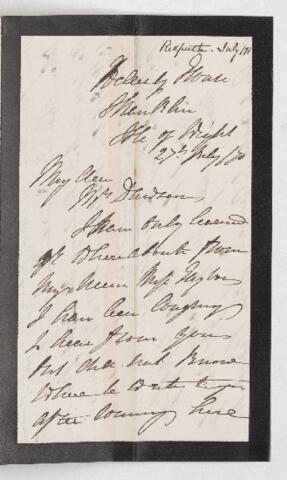 July
House
Shanklin
Isle of Wight
27th July
My dear
Mrs Davidson
I have only learned
yr whereabouts from
my Miss Taylor
I have been longing
to hear from you
but did not know
where to write to you
after coming here